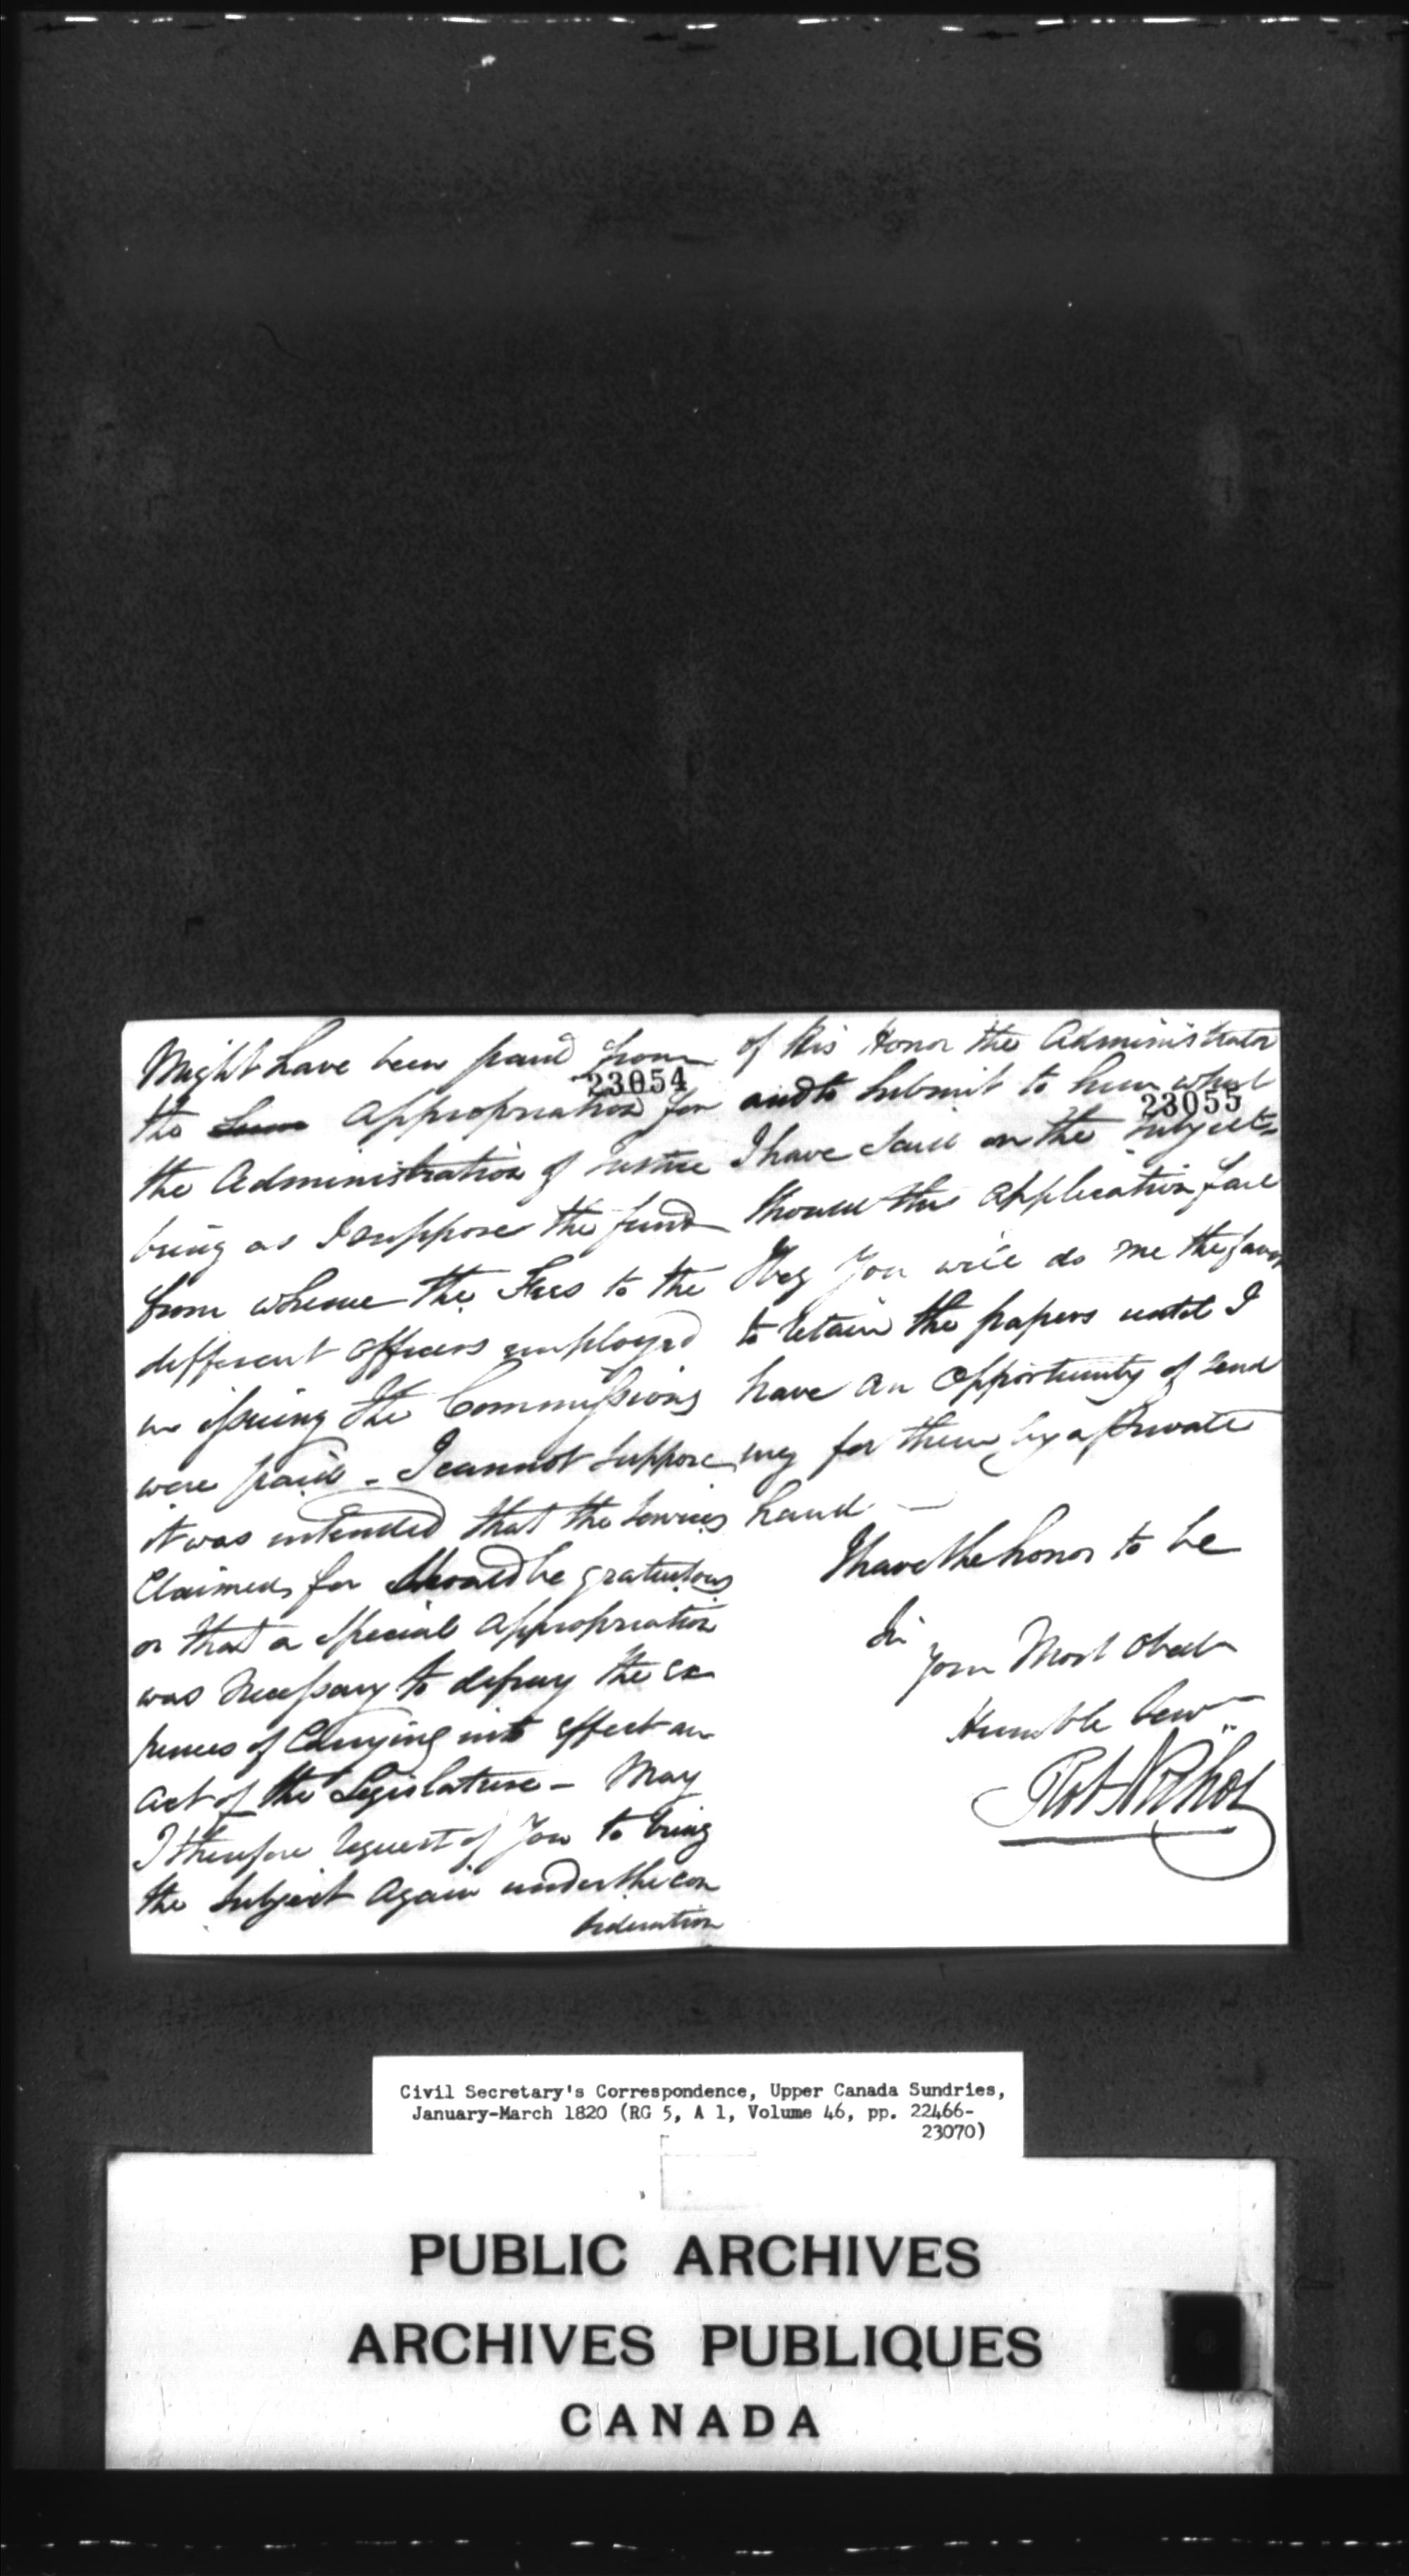 Might have been paid from
23054
the Sum appropriation for
the Administration of Justice
being as I suppose the fund
from whence the Fees to the
different officers employed
in issuing the Commissions
were paid - I cannot suppose
it was intended that the services
Claimed for should be gratuitous
or that a special appropriation
was necessary to defray the ex
pences of Carrying into effect an
act of the Legislature - May
I therefore request of You to bring
the subject again under the con
sideration
of His Honor the Administrator
and to submit to him what
23055
I have said on the subject -
Should this application fail
I beg You will do me the favor
to retain the papers until I
have an opportunity of send
ing for them by a private
hand -
I have the honor to be
Sir
Your Most Obedt
Humble Servt
Rob Nichol
Civil Secretary's Correspondence, Upper Canada Sundries,
January-March 1820 (RG 5, A 1, Volume 46, pp. 22466-
23070)
PUBLIC ARCHIVES
ARCHIVES PUBLIQUES
CANADA